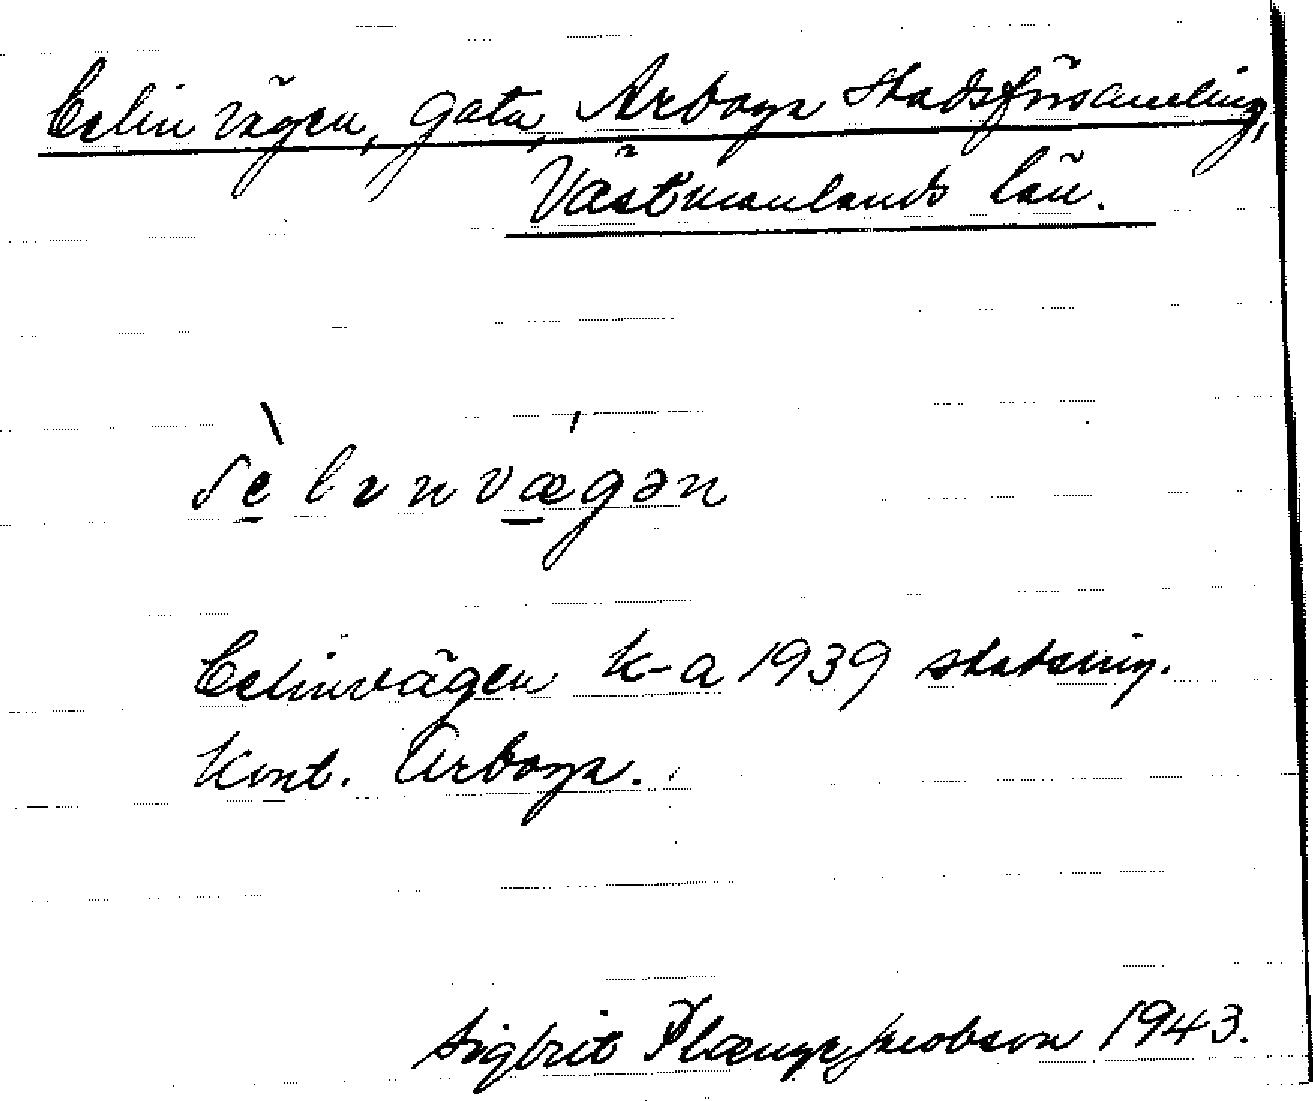 Celinvägen, gata, Arboga stadsförsamling,
Västmanlands län.
sè̱lınvæ̱gən
Celinvägen K-a 1939 stadsing.
Kont. Arboga.
Sigbrit Plænge Jacobson 1943.